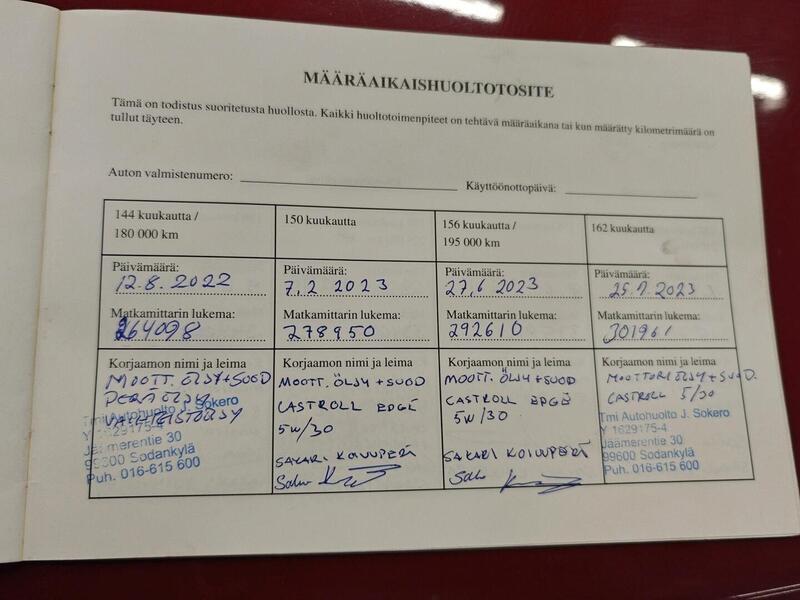 MÄÄRÄAIKAISHUOLTOTOSITE
Tämä on todistus suoritetusta huollosta. Kaikki huoltotoimenpiteet on tehtävä määräaikana tai kun määrätty kilometrimäärä on
tullut täyteen.
Auton valmistenumero:
Käyttöönottopäivä:
144 kuukautta /
180 000 km
150 kuukautta
156 kuukautta /
195 000 km
162 kuukautta
Päivämäärä:
12.8.2022
Päivämäärä:
7.2 2023
Päivämäärä:
27.6 2023
Päivämäärä:
2023
Matkamittarin lukema:
264098
Matkamittarin lukema:
278950
Matkamittarin lukema:
292610
Matkamittarin lukema:
301961
Korjaamon nimi ja leima
MOOTT. ÖLJY+SUOD
PERÄÖLJY
VAIHTEISTOÖLJY
Tmi Autohuolto J. Sokero
Y 1629175-4
Jäämerentie 30
99600 Sodankylä
Puh. 016-615 600
Korjaamon nimi ja leima
MOOTT. ÖLJY +SUOD
CASTROLL EDGE
5W/30
SAKARI KOIVUPERÄ
Korjaamon nimi ja leima
MOOTT. ÖLJY +SUOD
CASTROLL EDGE
5W/30
SAKARI KOIVUPERÄ
Korjaamon nimi ja leima
MOOTTORIÖLJY + SUOD.
CASTROLL 5/30
Tmi Autohuolto J. Sokero
Y 1629175-4
Jäämerentie 30
99600 Sodankylä
Puh. 016-615 600